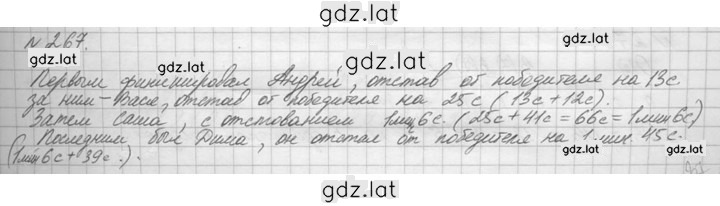 gdz.lat
N 267.
Первым финишировал Андрей, отстав от победителя на 13с
gdz.lat
за ним - Вася, отстав от победителя на 25с (13с+12с).
Затем Саша, с отставанием 1мин6с. (25с+41с=66с=1мин6с)
Последним был Дима, он отстал от победителя на 1 мин. 45с.
gdz.lat
(1мин6с+39с.).
gdz.lat
gdz.lat